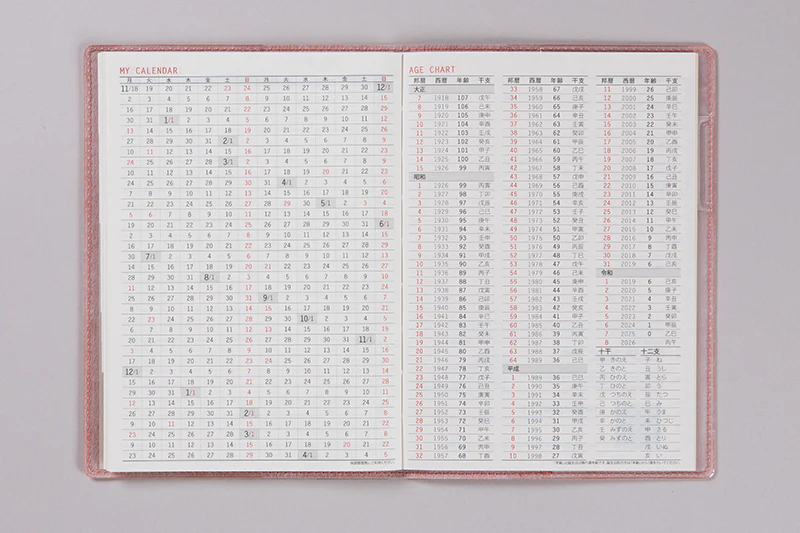 MY CALENDAR
月 火 水 木 金 土 日 月 火 水 木 金 土 日
11/18 19 20 21 22 23 24 25 26 27 28 29 30 12/1
2 3 4 5 6 7 8 9 10 11 12 13 14 15
16 17 18 19 20 21 22 23 24 25 26 27 28 29
30 31 1/1 2 3 4 5 6 7 8 9 10 11 12
13 14 15 16 17 18 19 20 21 22 23 24 25 26
27 28 29 30 31 2/1 2 3 4 5 6 7 8 9
10 11 12 13 14 15 16 17 18 19 20 21 22 23
24 25 26 27 28 3/1 2 3 4 5 6 7 8 9
10 11 12 13 14 15 16 17 18 19 20 21 22 23
24 25 26 27 28 29 30 31 4/1 2 3 4 5 6
7 8 9 10 11 12 13 14 15 16 17 18 19 20
21 22 23 24 25 26 27 28 29 30 5/1 2 3 4
5 6 7 8 9 10 11 12 13 14 15 16 17 18
19 20 21 22 23 24 25 26 27 28 29 30 31 6/1
2 3 4 5 6 7 8 9 10 11 12 13 14 15
16 17 18 19 20 21 22 23 24 25 26 27 28 29
30 7/1 2 3 4 5 6 7 8 9 10 11 12 13
14 15 16 17 18 19 20 21 22 23 24 25 26 27
28 29 30 31 8/1 2 3 4 5 6 7 8 9 10
11 12 13 14 15 16 17 18 19 20 21 22 23 24
25 26 27 28 29 30 31 9/1 2 3 4 5 6 7
8 9 10 11 12 13 14 15 16 17 18 19 20 21
22 23 24 25 26 27 28 29 30 10/1 2 3 4 5
6 7 8 9 10 11 12 13 14 15 16 17 18 19
20 21 22 23 24 25 26 27 28 29 30 31 11/1 2
3 4 5 6 7 8 9 10 11 12 13 14 15 16
17 18 19 20 21 22 23 24 25 26 27 28 29 30
12/1 2 3 4 5 6 7 8 9 10 11 12 13 14
15 16 17 18 19 20 21 22 23 24 25 26 27 28
29 30 31 1/1 2 3 4 5 6 7 8 9 10 11
12 13 14 15 16 17 18 19 20 21 22 23 24 25
26 27 28 29 30 31 2/1 2 3 4 5 6 7 8
9 10 11 12 13 14 15 16 17 18 19 20 21 22
23 24 25 26 27 28 3/1 2 3 4 5 6 7 8
9 10 11 12 13 14 15 16 17 18 19 20 21 22
23 24 25 26 27 28 29 30 31 4/1 2 3 4 5
AGE CHART
邦暦 西暦 年齢 干支
大正
7 1918 107 戊午
8 1919 106 己未
9 1920 105 庚申
10 1921 104 辛酉
11 1922 103 壬戌
12 1923 102 癸亥
13 1924 101 甲子
14 1925 100 乙丑
15 1926 99 丙寅
昭和
1 1926 99 丙寅
2 1927 98 丁卯
3 1928 97 戊辰
4 1929 96 己巳
5 1930 95 庚午
6 1931 94 辛未
7 1932 93 壬申
8 1933 92 癸酉
9 1934 91 甲戌
10 1935 90 乙亥
11 1936 89 丙子
12 1937 88 丁丑
13 1938 87 戊寅
14 1939 86 己卯
15 1940 85 庚辰
16 1941 84 辛巳
17 1942 83 壬午
18 1943 82 癸未
19 1944 81 甲申
20 1945 80 乙酉
21 1946 79 丙戌
22 1947 78 丁亥
23 1948 77 戊子
24 1949 76 己丑
25 1950 75 庚寅
26 1951 74 辛卯
27 1952 73 壬辰
28 1953 72 癸巳
29 1954 71 甲午
30 1955 70 乙未
31 1956 69 丙申
32 1957 68 丁酉
邦暦 西暦 年齢 干支
33 1958 67 戊戌
34 1959 66 己亥
35 1960 65 庚子
36 1961 64 辛丑
37 1962 63 壬寅
38 1963 62 癸卯
39 1964 61 甲辰
40 1965 60 乙巳
41 1966 59 丙午
42 1967 58 丁未
43 1968 57 戊申
44 1969 56 己酉
45 1970 55 庚戌
46 1971 54 辛亥
47 1972 53 壬子
48 1973 52 癸丑
49 1974 51 甲寅
50 1975 50 乙卯
51 1976 49 丙辰
52 1977 48 丁巳
53 1978 47 戊午
54 1979 46 己未
55 1980 45 庚申
56 1981 44 辛酉
57 1982 43 壬戌
58 1983 42 癸亥
59 1984 41 甲子
60 1985 40 乙丑
61 1986 39 丙寅
62 1987 38 丁卯
63 1988 37 戊辰
64 1989 36 己巳
平成
1 1989 36 己巳
2 1990 35 庚午
3 1991 34 辛未
4 1992 33 壬申
5 1993 32 癸酉
6 1994 31 甲戌
7 1995 30 乙亥
8 1996 29 丙子
9 1997 28 丁丑
10 1998 27 戊寅
邦暦 西暦 年齢 干支
11 1999 26 己卯
12 2000 25 庚辰
13 2001 24 辛巳
14 2002 23 壬午
15 2003 22 癸未
16 2004 21 甲申
17 2005 20 乙酉
18 2006 19 丙戌
19 2007 18 丁亥
20 2008 17 戊子
21 2009 16 己丑
22 2010 15 庚寅
23 2011 14 辛卯
24 2012 13 壬辰
25 2013 12 癸巳
26 2014 11 甲午
27 2015 10 乙未
28 2016 9 丙申
29 2017 8 丁酉
30 2018 7 戊戌
31 2019 6 己亥
令和
1 2019 6 己亥
2 2020 5 庚子
3 2021 4 辛丑
4 2022 3 壬寅
5 2023 2 癸卯
6 2024 1 甲辰
7 2025 0 乙巳
8 2026 丙午
十干 十二支
甲 きのえ 子 ね
乙 きのと 丑 うし
丙 ひのえ 寅 とら
丁 ひのと 卯 う
戊 つちのえ 辰 たつ
己 つちのと 巳 み
庚 かのえ 午 うま
辛 かのと 未 ひつじ
壬 みずのえ 申 さる
癸 みずのと 酉 とり
戌 いぬ
亥 い